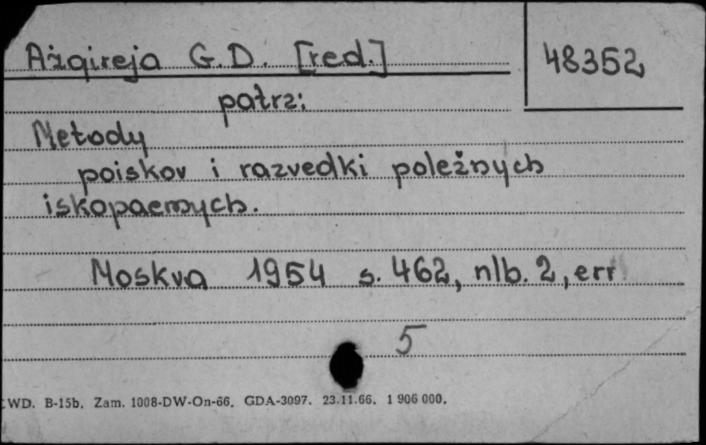 Ażgireja G. D. [red.] 48352
patrz:
Metody
poiskov i razvedki poležnych
iskopaemych.
Moskva 1954 s. 462, nlb. 2, err
5
WD. B-15b. Zam. 1008-DW-On-66. GDA-3097. 23.11.66. 1 906 000.